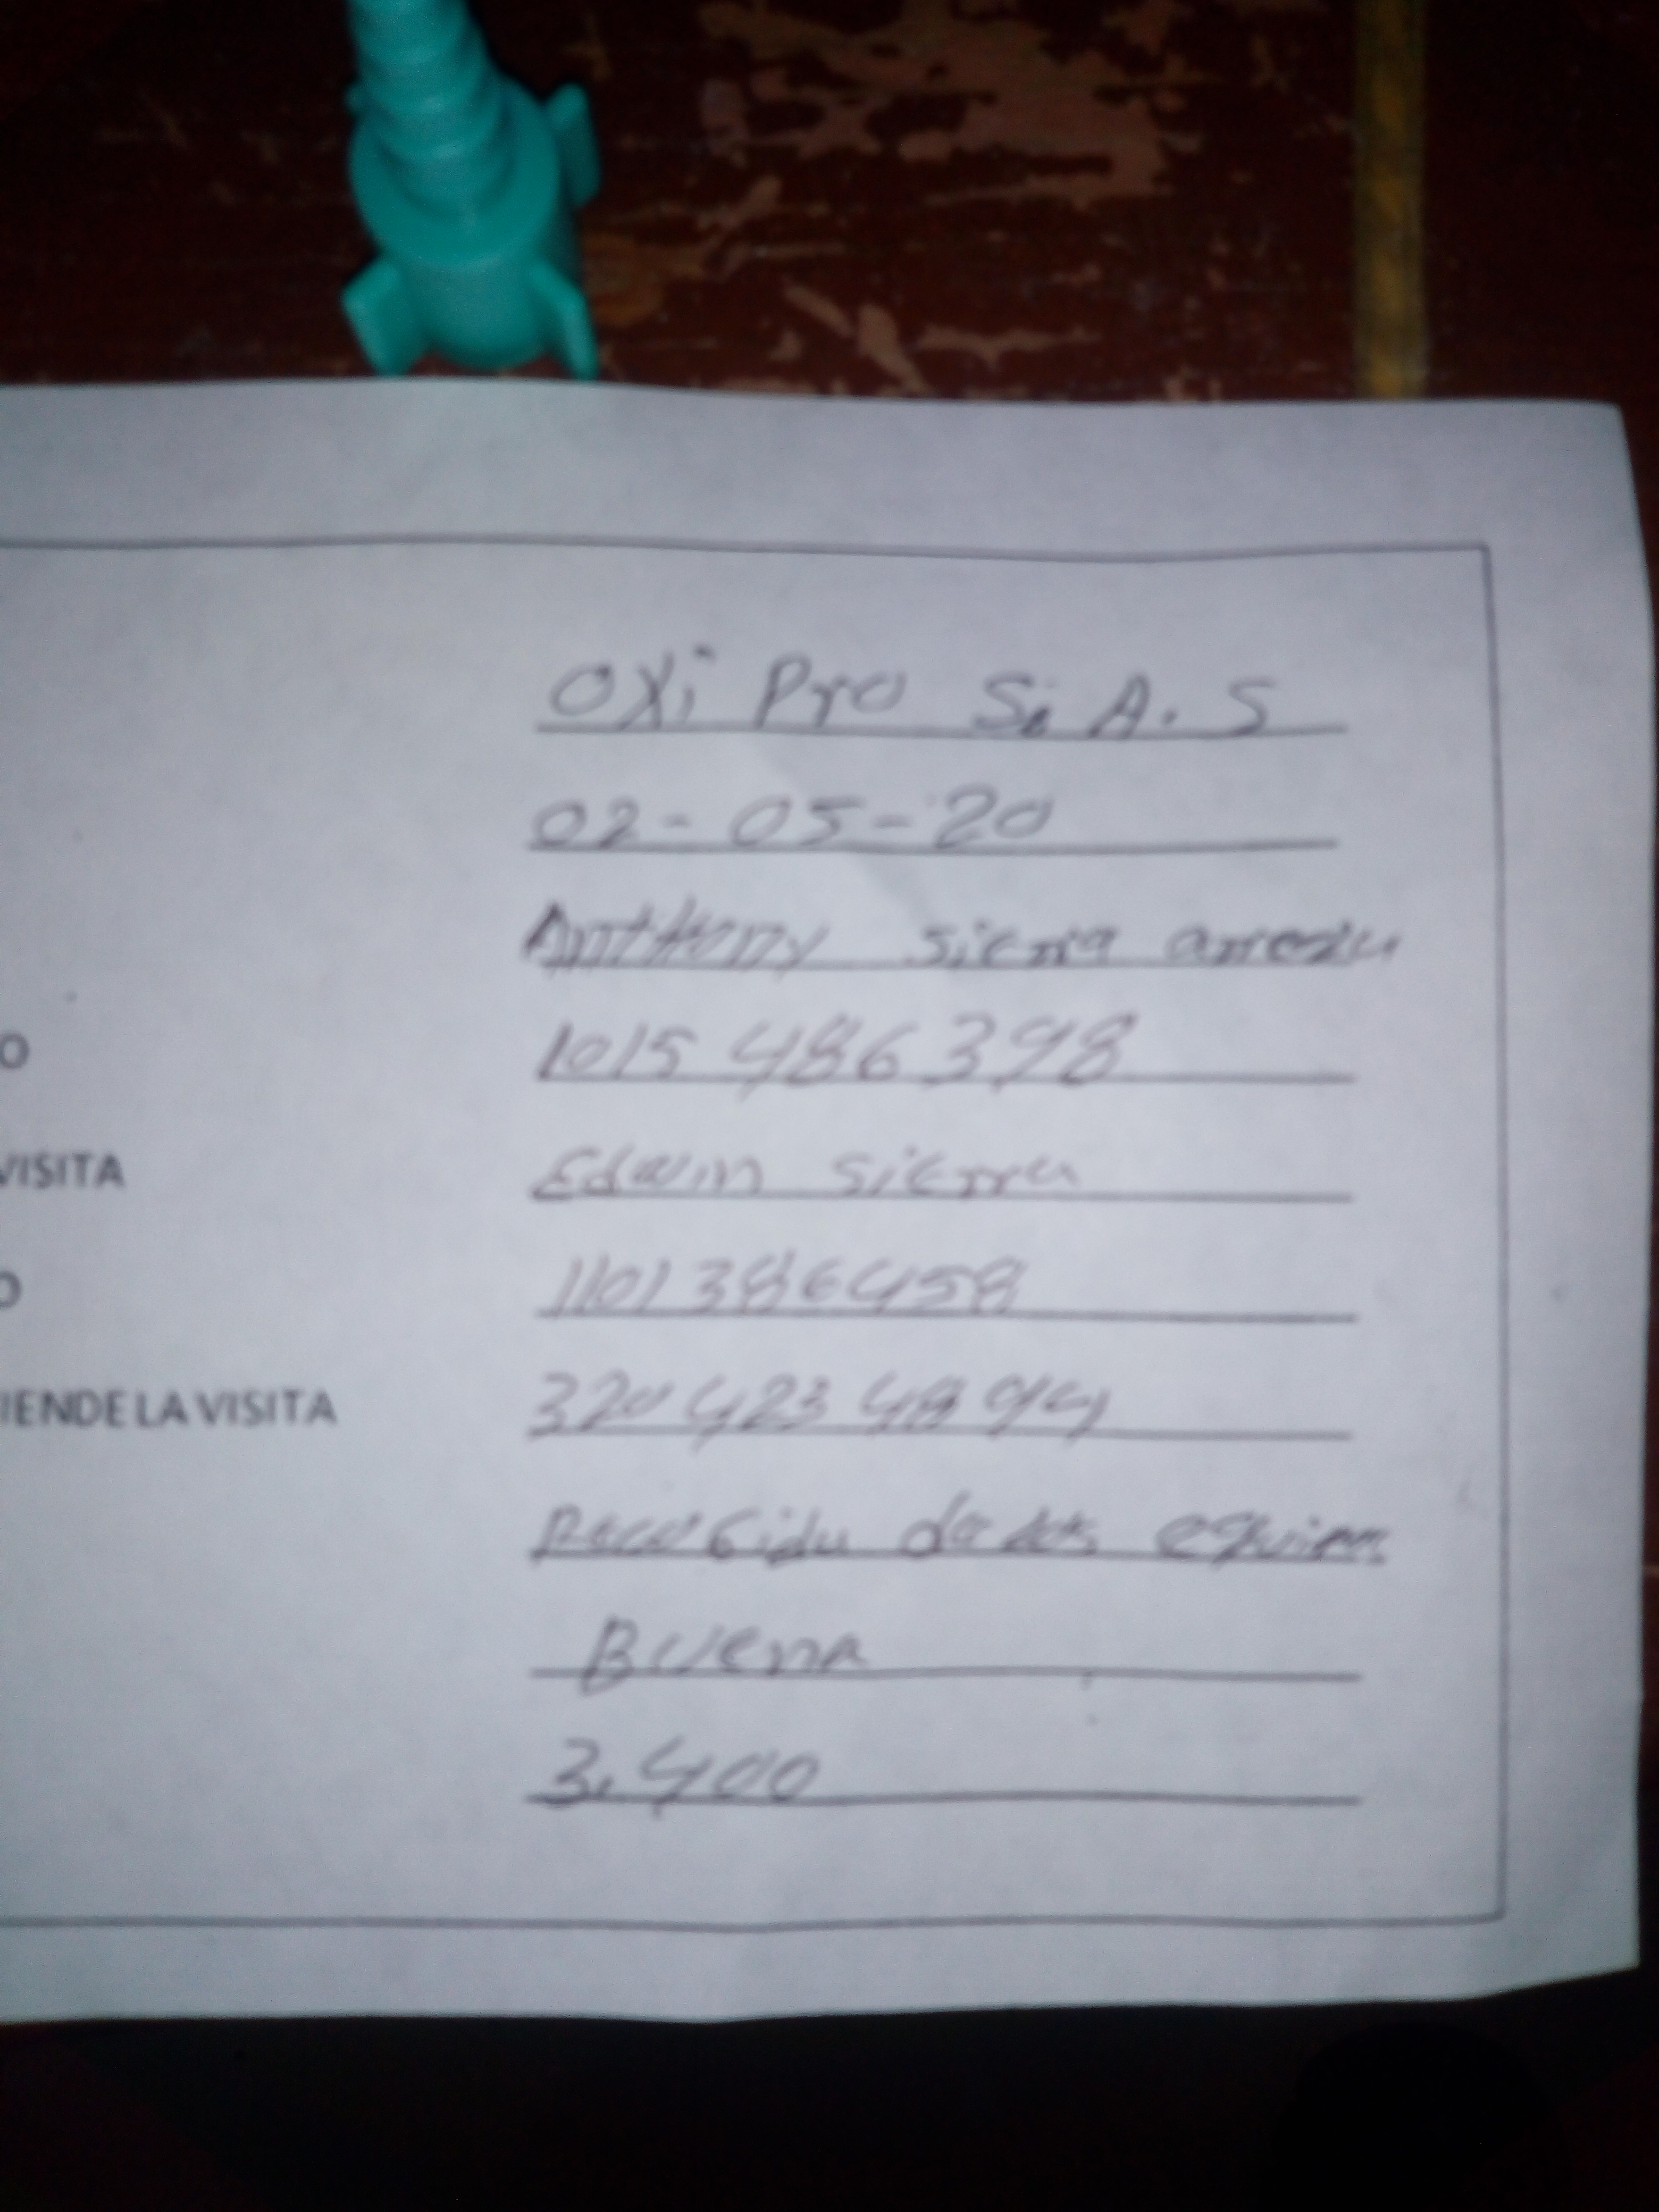 OXi Pro S. A. S
02-05-20
Anthony Sierra
O 1015 486 398
VISITA Edwin Sierra
O 1101386458
IENDE LA VISITA 320 423 48 94
de los
Buena
3.400